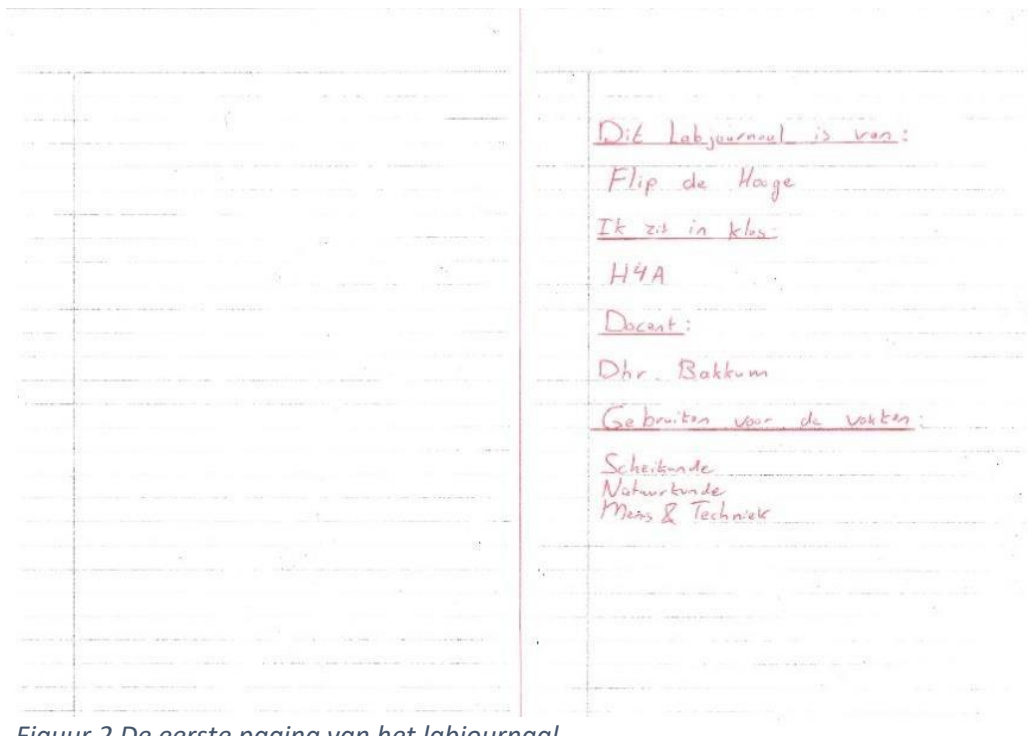 Dit Labjournaal is van:
Flip de Hooge
Ik zit in klas:
H4A
Docent:
Dhr. Bakkum
Gebruiken voor de vakken:
Scheikunde
Natuurkunde
Mens & Techniek
Figuur 2 De eerste pagina van het labjournaal